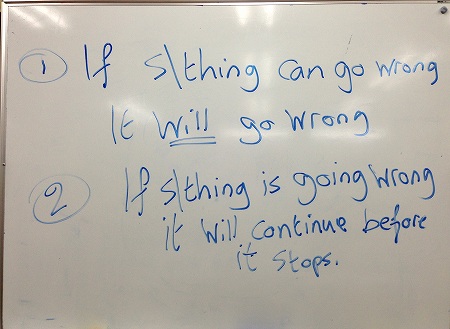 1 If s\thing can go wrong
It will go wrong
2 If s\thing is going wrong
it will continue before
it stops.